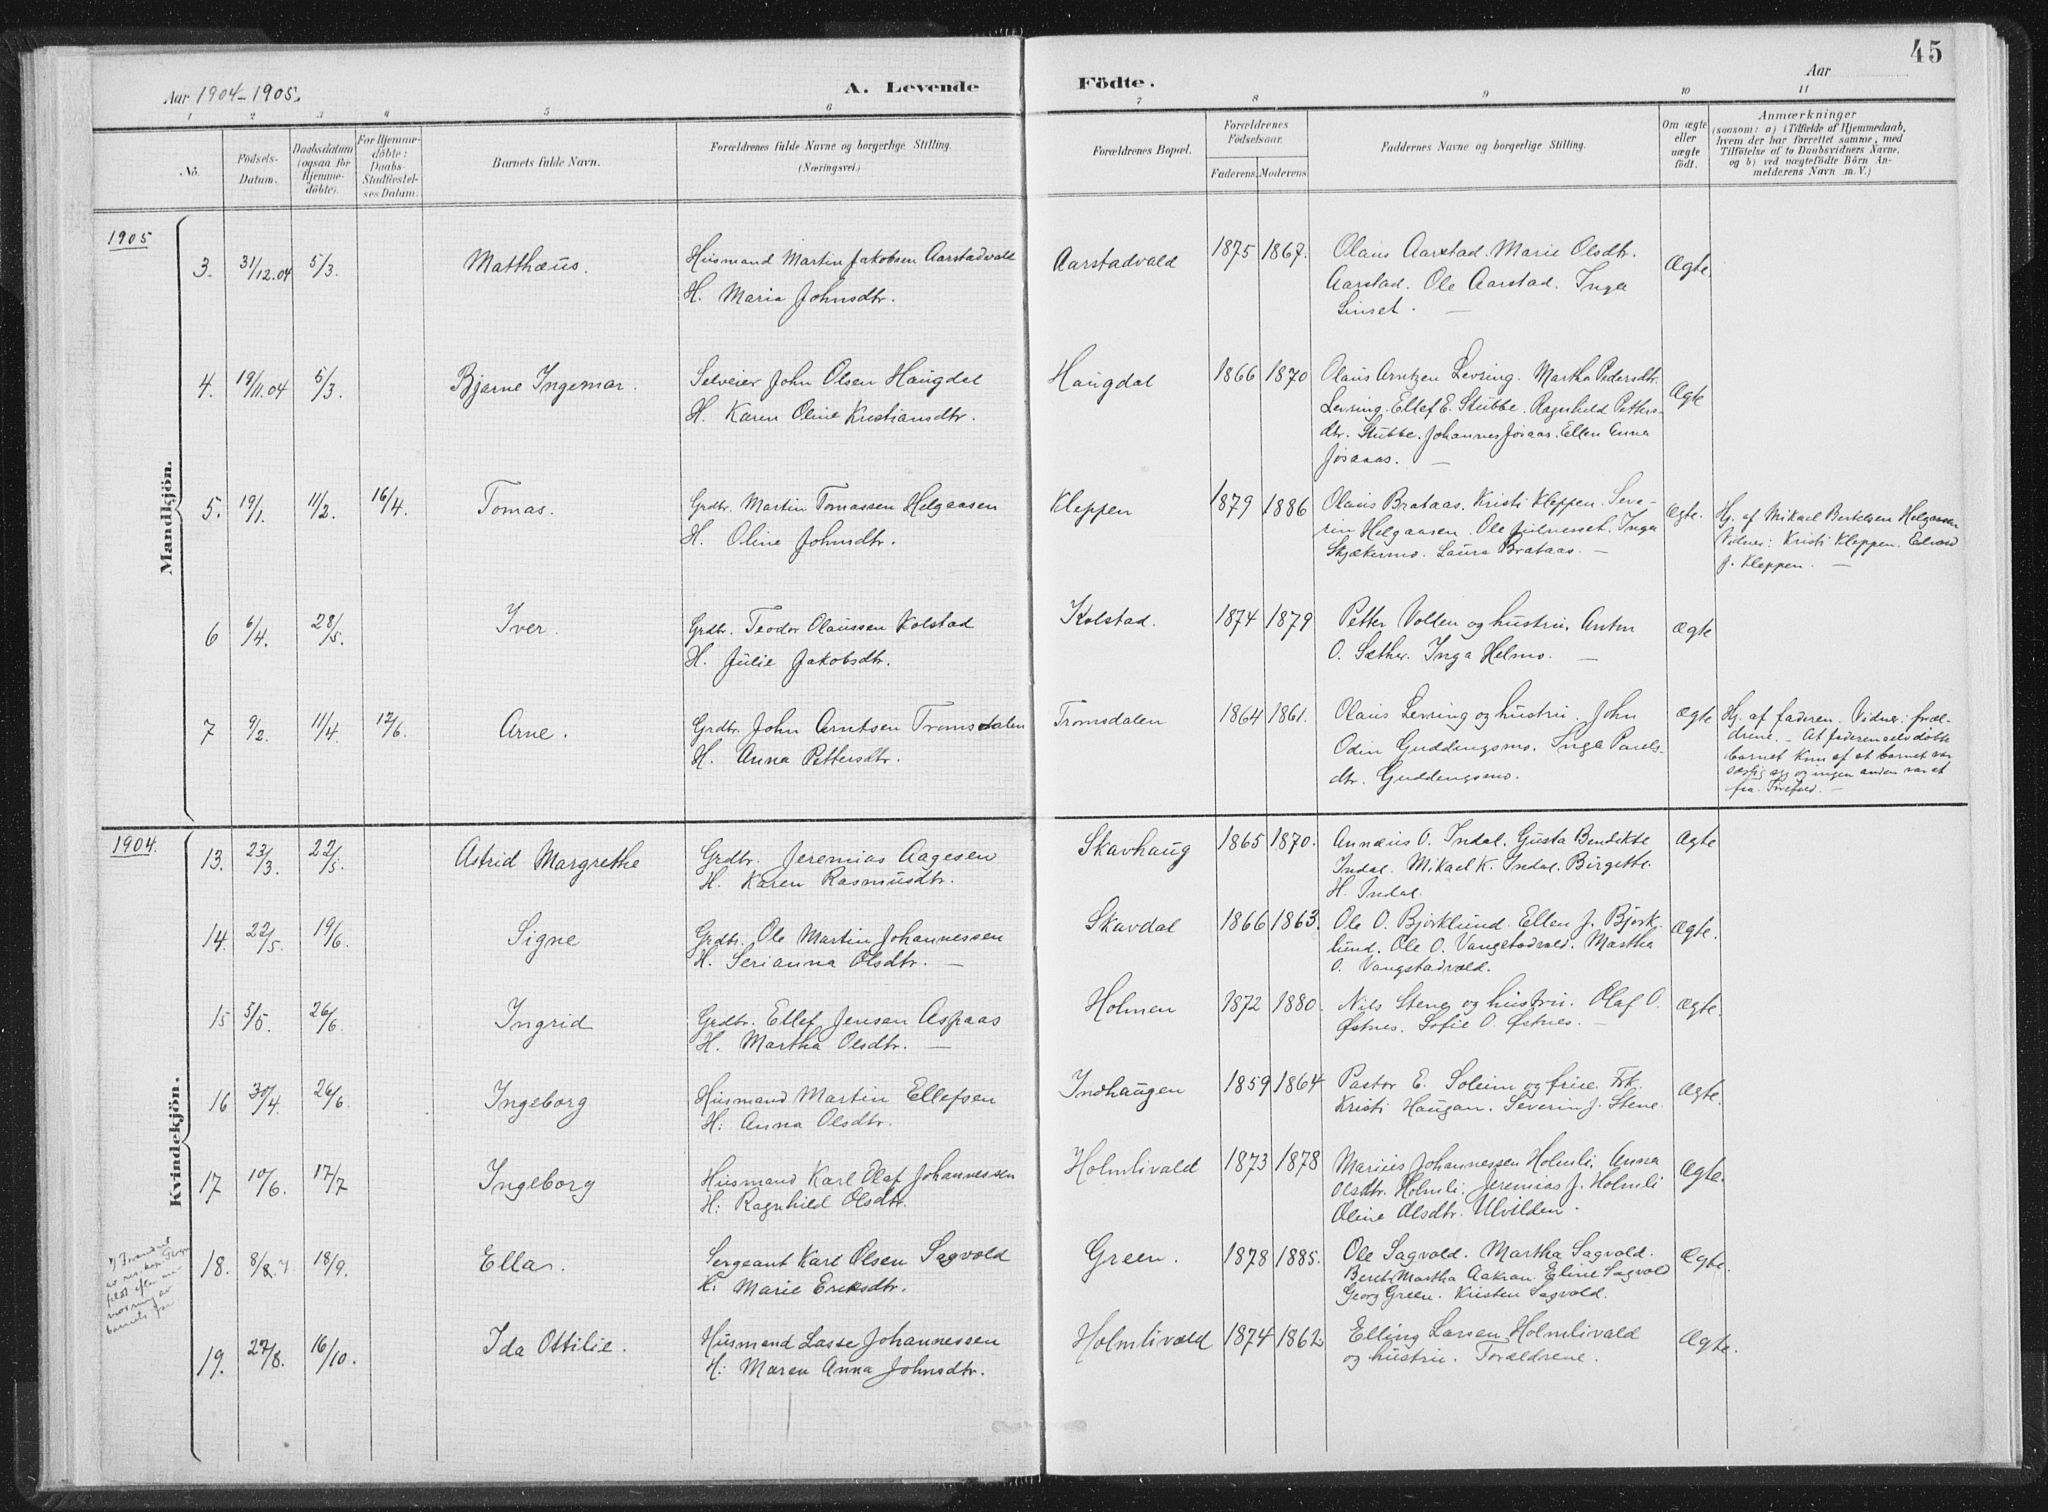 45
Aar 1904-1905.
A. Levende
Födte.
Aar
1 2 3 4 5 6 7 8 9 10 11
No.
Födsels-
Datum.
Daabsdatum
(ogsaa for
Hjemme-
döbte).
For Hjemme-
döbte:
Daabs-
Stadfæstel-
ses Datum.
Barnets fulde Navn.
Forældrenes fulde Navne og borgerlige Stilling.
(Næringsvei.)
Forældrenes Bopæl.
Forældrenes
Födselsaar.
Faderens. Moderens.
Faddernes Navne og borgerlige Stilling.
Om ægte
eller
uægte
födt.
Anmærkninger
(saasom: a) i Tilfælde af Hjemmedaab,
hvem der har forrettet samme, med
Tilföielse af to Daabsvidners Navne,
og b) ved uægtefödte Börn An-
melderens Navn m. V.)
1905
Mandkjön.
3. 31/12.04 5/3. Matthæus. Husmand Martin Jakobsen Aarstadvald Aarstadvald 1875 1867. Olaus Aarstad. Marie Olsdtr. Ægte.
H. Maria Johnsdtr. Aarstad. Ole Aarstad. Inga
Linset.
4. 19/11.04 5/3. Bjarne Ingemar. Selveier John Olsen Haugdal Haugdal 1866 1870 Olaus Arntzen Levring. Martha Pedersdtr. Ægte
H. Karen Oline Kristiansdtr. Levring. Ellef E. Stubbe. Ragnhild Petters-
dtr. Stubbe. Johannes Jøsaas. Ellen Anna
Jøsaas.
5. 19/1. 11/2. 16/4. Tomas. Grdbr. Martin Tomassen Helgaasen Kleppen 1879 1886 Olaus Brataas. Kristi Kleppen. Seve- Ægte. Hj. af Mikael Bertelsen Helgaasen
H. Oline Johnsdtr. rin Helgaasen. Ole Julnesset. Inga Vidner: Kristi Kleppen. Edvard
Skjækermo. Laura Brataas. J. Kleppen.
6 6/4. 28/5. Iver. Grdbr. Teodor Olaussen Kolstad Kolstad. 1874 1879 Petter Volden og hustru. Anton Ægte
H. Julie Jakobsdtr. O. Sæther. Inga Helmo.
7 9/2. 11/4. 12/6. Arne. Grdbr. John Arntsen Tromsdalen Tromsdalen 1864 1861. Olaus Levring og hustru. John Ægte Hj. af faderen. Vidner: foræl-
H. Anna Pettersdtr. Odin Guddingsmo. Inga Pauls- drene. - At faderen selv døbte
dtr. Guddingsmo. barnet kom af at barnet var
og ingen anden var at
faa.
1904.
Kvindekjön.
13. 23/3. 22/5. Astrid Margrethe Grdbr. Jeremias Aagesen Skavhaug 1865 1870. Annæus O. Indal. Gusta Bendikte Ægte
H. Karen Rasmusdtr. Indal. Mikael K. Indal. Birgitte
H. Indal.
14. 22/5. 19/6. Signe Grdbr. Ole Martin Johannessen Skavdal 1866 1863. Ole O. Bjørklund. Ellen J. Bjørk- Ægte.
H. Serianna Olsdtr. lund. Ole O. Vangstadvald. Martha
O. Vangstadvald.
15 5/5. 26/6. Ingrid Grdbr. Ellef Jensen Aspaas Holmen 1872 1880. Nils Stene og hustru. Olaf O. Ægte.
H. Martha Olsdtr. Østnes. Sofie O. Østnes.
16 30/4. 26/6. Ingeborg Husmand Martin Ellefsen Indhaugen 1859 1864 Pastor E. Soleim og frue. Frk. Ægte.
H. Anna Olsdtr. Kristi Haugan. Severin J. Stene.
17 10/6. 17/7 Ingeborg Husmand Karl Olaf Johannessen Holmlivald 1873 1878 Marius Johannessen Holmli. Anna Ægte.
H: Ragnhild Olsdtr. Olsdtr. Holmli. Jeremias J. Holmli
Oline Olsdtr. Ulvilden.
18. 8/8. 18/9. Ella. Sergeant Karl Olsen Sagvold Green. 1878 1885. Ole Sagvold. Martha Sagvold. Ægte.
H. Marie Eriksdtr. Beret Martha Aakran. Eline Sagvold
Georg Green. Kristen Sagvold.
19. 27/8. 16/10. Ida Ottilie. Husmand Lasse Johannessen Holmlivald 1874 1862 Elling Larsen Holmlivald Ægte.
H: Maren Anna Johnsdtr. og hustru. Forældrene.